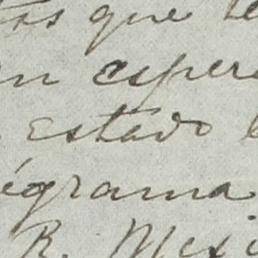 tos que te
en esper
Estado
égrama
R. Mexi